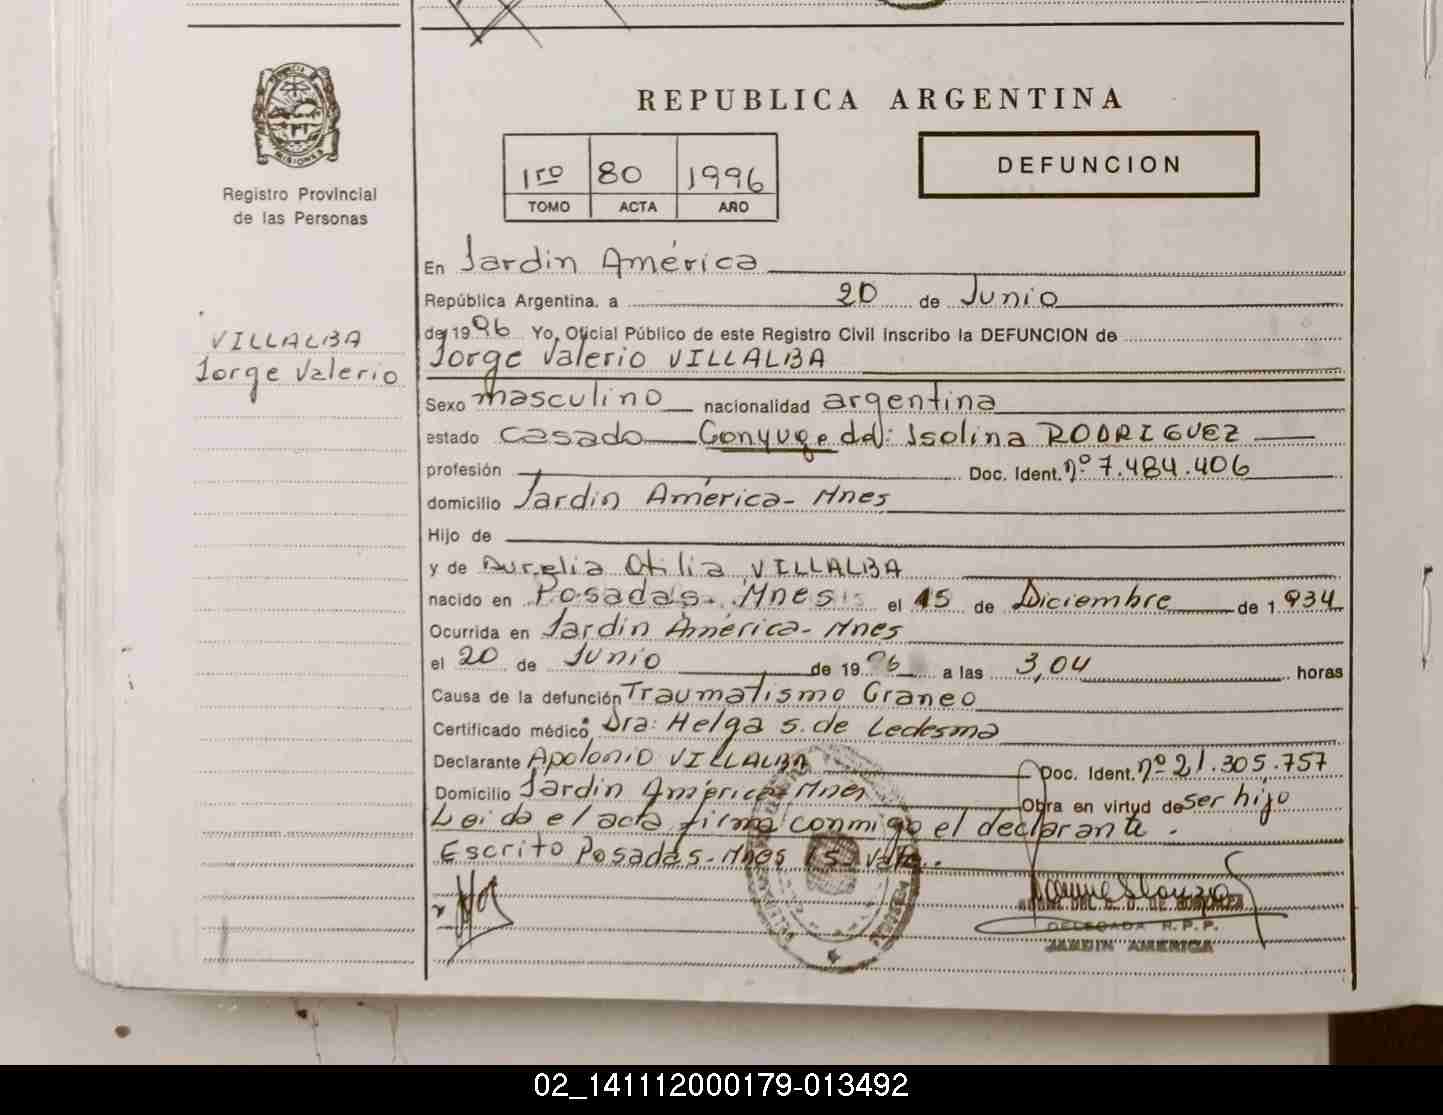 PROVINCIA DE
MISIONES
Registro Provincial
de las Personas
VILLALBA
Jorge Valerio
REPUBLICA ARGENTINA
DEFUNCION
1ro 80 1996
TOMO ACTA AÑO
En Jardin América
República Argentina. a 20 de Junio
de 1996 Yo, Oficial Público de este Registro Civil Inscribo la DEFUNCION de
Jorge Valerio VILLALBA
Sexo masculino nacionalidad argentina
estado casado Conyuge de: Isolina RODRIGUEZ
profesión Doc. Ident. nº 7.484.406
domicilio Jardin América - Mnes
Hijo de
y de Aurelia Otilia VILLALBA
nacido en Posadas - Mnes el 15 de Diciembre de 1.934
Ocurrida en Jardin América - Mnes
el 20 de Junio de 1996 a las 3,04 horas
Causa de la defunción Traumatismo Craneo
Certificado médico Dra: Helga S. de Ledesma
Declarante Apolonio VILLALBA Doc. Ident. nº 21.305.757
Domicilio Jardin América - Mnes Obra en virtud de ser hijo
Leida el acta firma conmigo el declarante.
Escrito Posadas - Mnes 15 Vale.
DELEGADA R.P.P.
JARDIN AMERICA
02_141112000179-013492